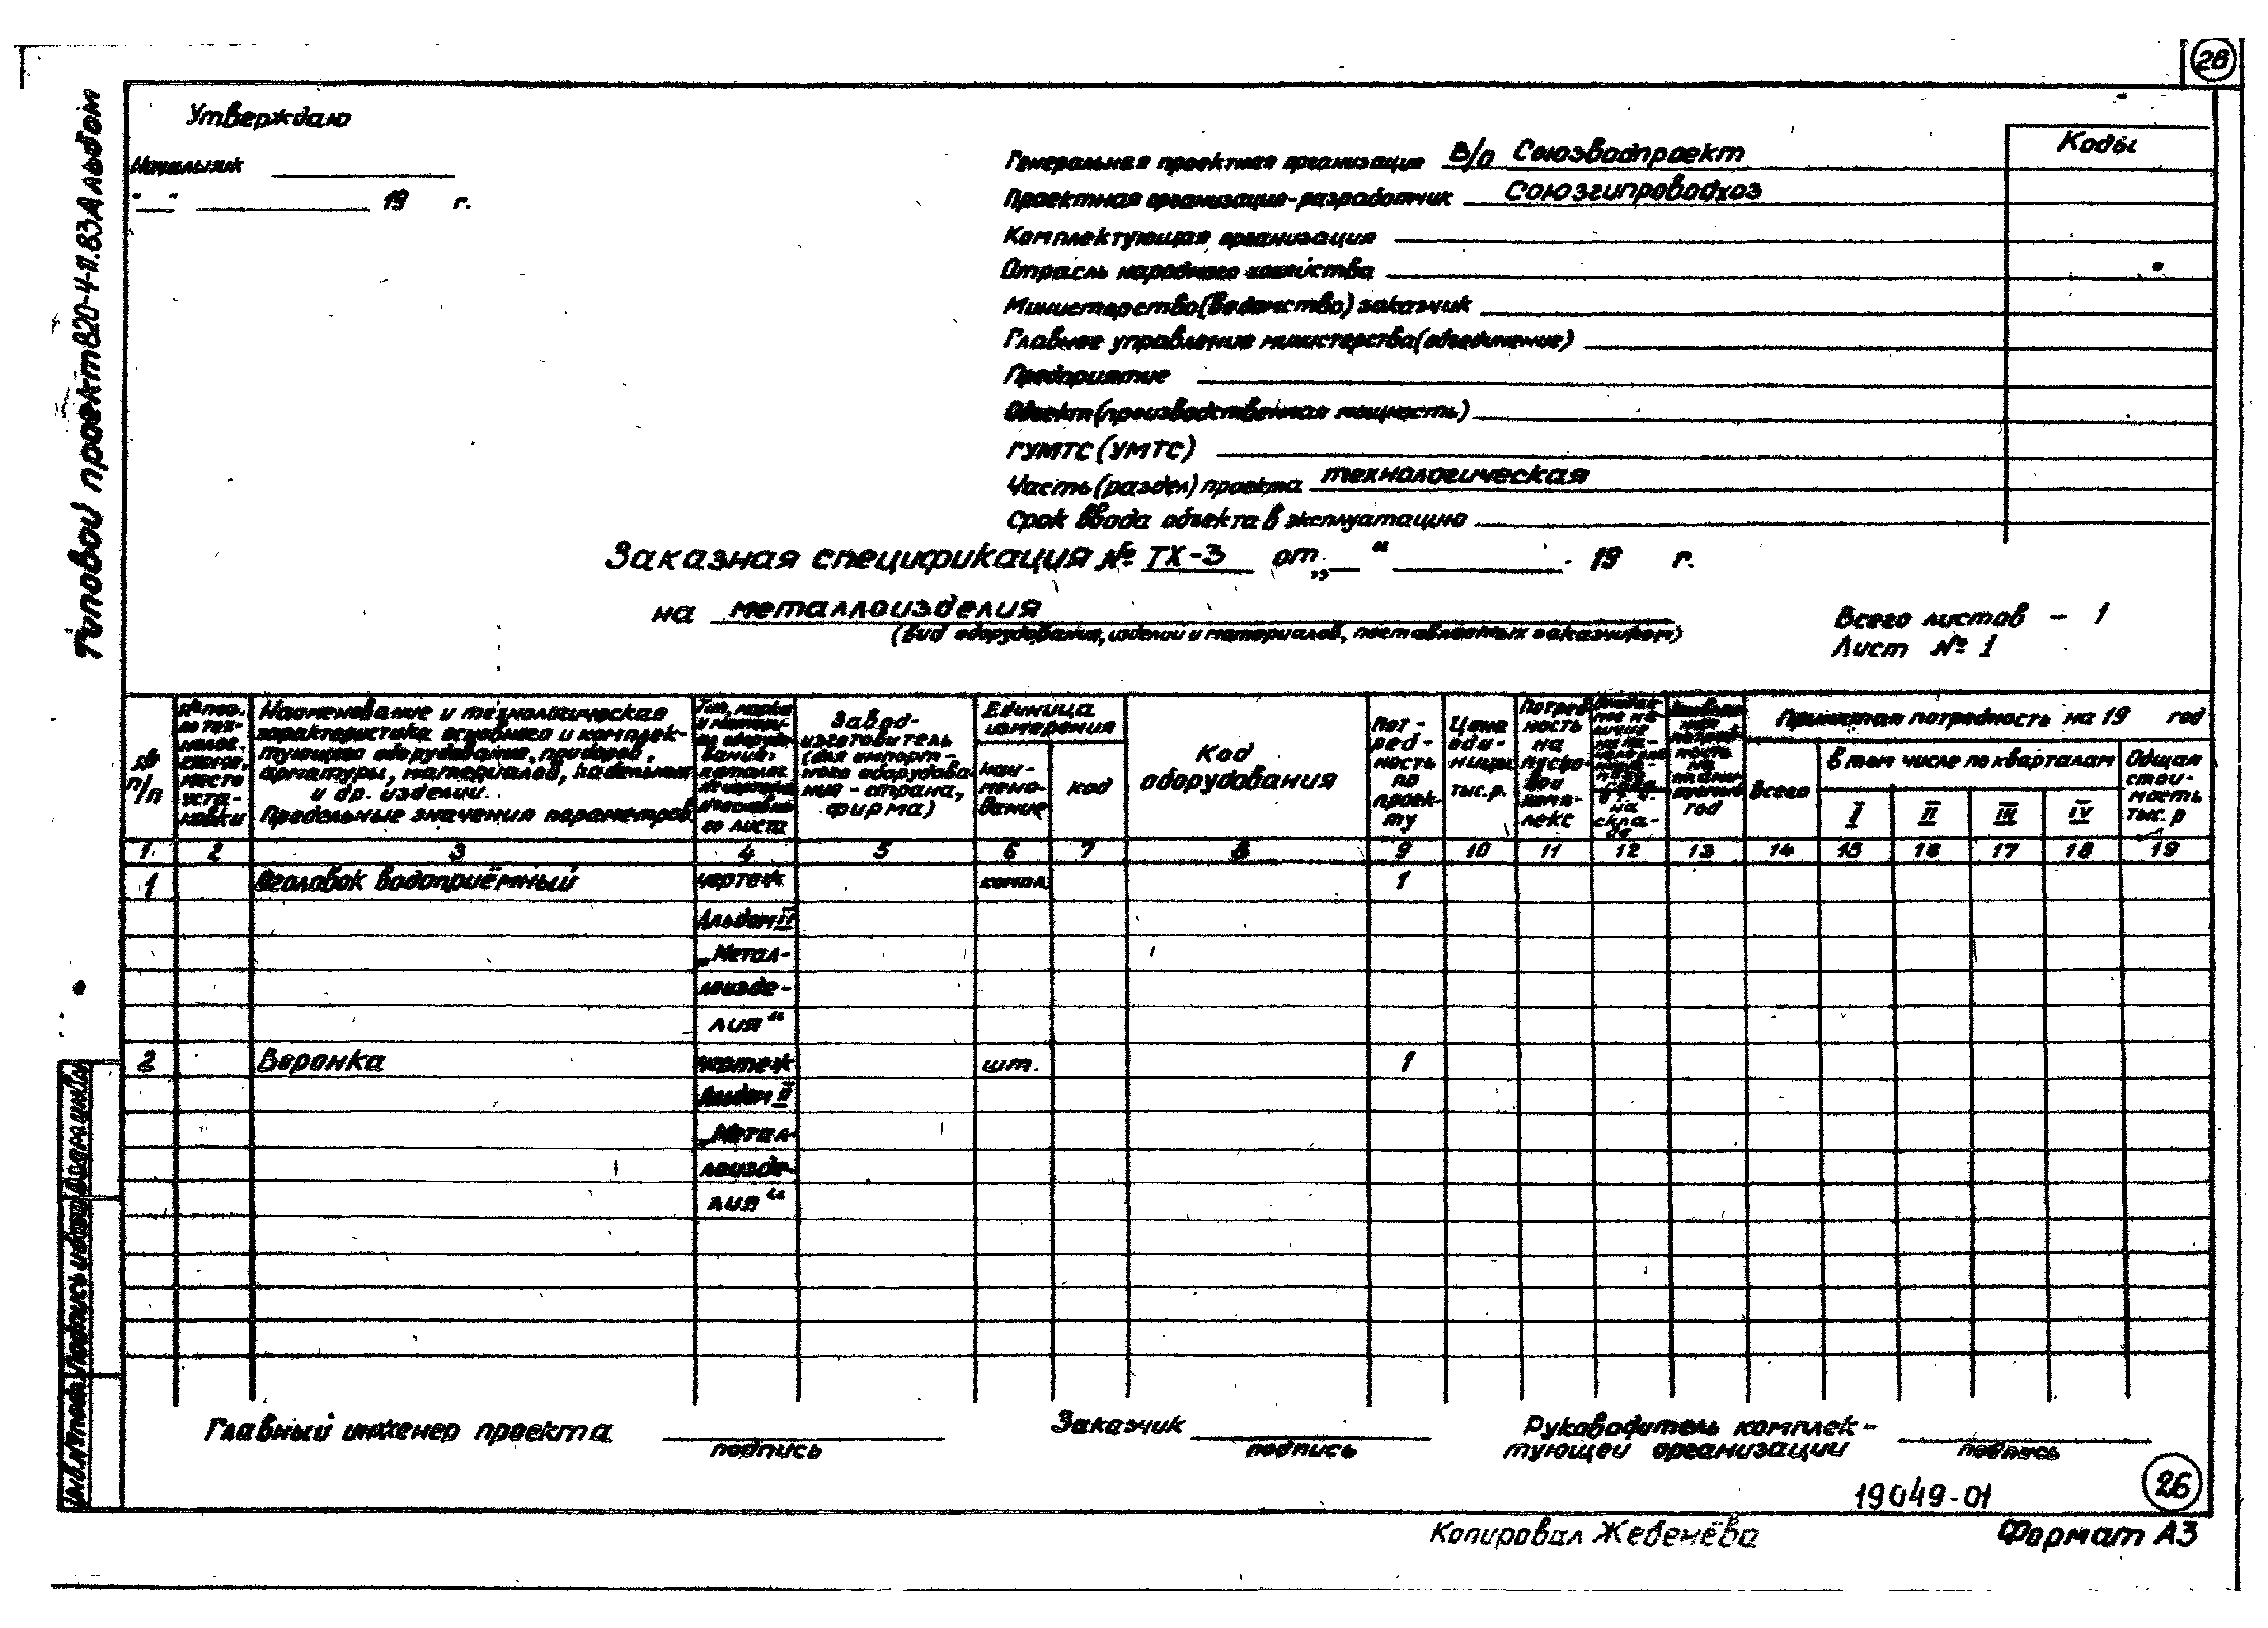 28
Типовой проект 820-4-11.83 Альбом
Утверждаю
Начальник
" " 19 г.
Коды
Генеральная проектная организация В/О Союзводпроект
Проектная организация-разработчик Союзгипроводхоз
Комплектующая организация
Отрасль народного хозяйства
Министерство (ведомство) заказчик
Главное управление министерства (объединение)
Предприятие
Объект (производственная мощность)
ГУМТС (УМТС)
Часть (раздел) проекта технологическая
Срок ввода объекта в эксплуатацию
Заказная спецификация № ТХ-3 от „ “ 19 г.
на металлоизделия
(вид оборудования, изделий и материалов, поставляемых заказчиком)
Всего листов - 1
Лист № 1
№
п/п
№ поз.
по тех-
нолог.
схеме,
место
уста-
новки
Наименование и технологическая
характеристика основного и комплек-
тующего оборудование, приборов,
арматуры, материалов, кабельных
и др. изделий.
Предельные значения параметров
Тип, марка
каталог
№ чертежа
го листа
Завод-
изготовитель
(для импорт-
ного оборудова-
ния - страна,
фирма)
Единица
измерения
наи-
мено-
вание
код
Код
оборудования
Пот-
реб-
ность
по
проек-
ту
Цена
еди-
ницы
тыс.р.
Потреб
ность
на
пуско-
вой
комп-
лекс
на
скла-
де
на
плани-
руемый
год
Принятая потребность на 19 год
всего
в том числе по кварталам
I II III IV
Общая
стои-
мость
тыс. р
1 2 3 4 5 6 7 8 9 10 11 12 13 14 15 16 17 18 19
1 Оголовок водоприёмный чертеж компл. 1
Альбом II
„Метал-
лоизде-
лия“
2 Воронка чертеж шт. 1
Альбом II
„Метал-
лоизде-
лия“
Главный инженер проекта
подпись
Заказчик
подпись
Руководитель комплек-
тующей организации
подпись
Инв.№ подл. Подпись и дата Взам.инв.№
19049-01
26
Копировал Жебенёва
Формат А3